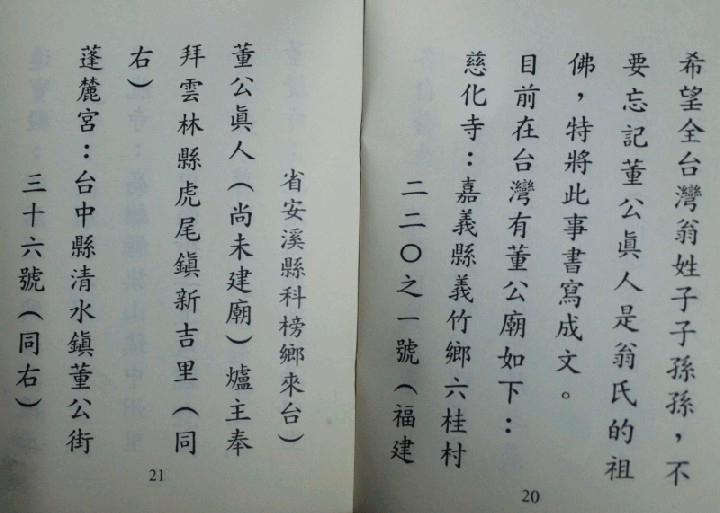 希望全台灣翁姓子子孫孫，不
要忘記董公眞人是翁氏的祖
佛，特將此事書寫成文。
目前在台灣有董公廟如下：
慈化寺：嘉義縣義竹鄉六桂村
二二〇之一號（福建
20
省安溪縣科榜鄉來台）
董公眞人（尚未建廟）爐主奉
拜雲林縣虎尾鎮新吉里（同
右）
蓬麓宮：台中縣清水鎮董公街
三十六號（同右）
21